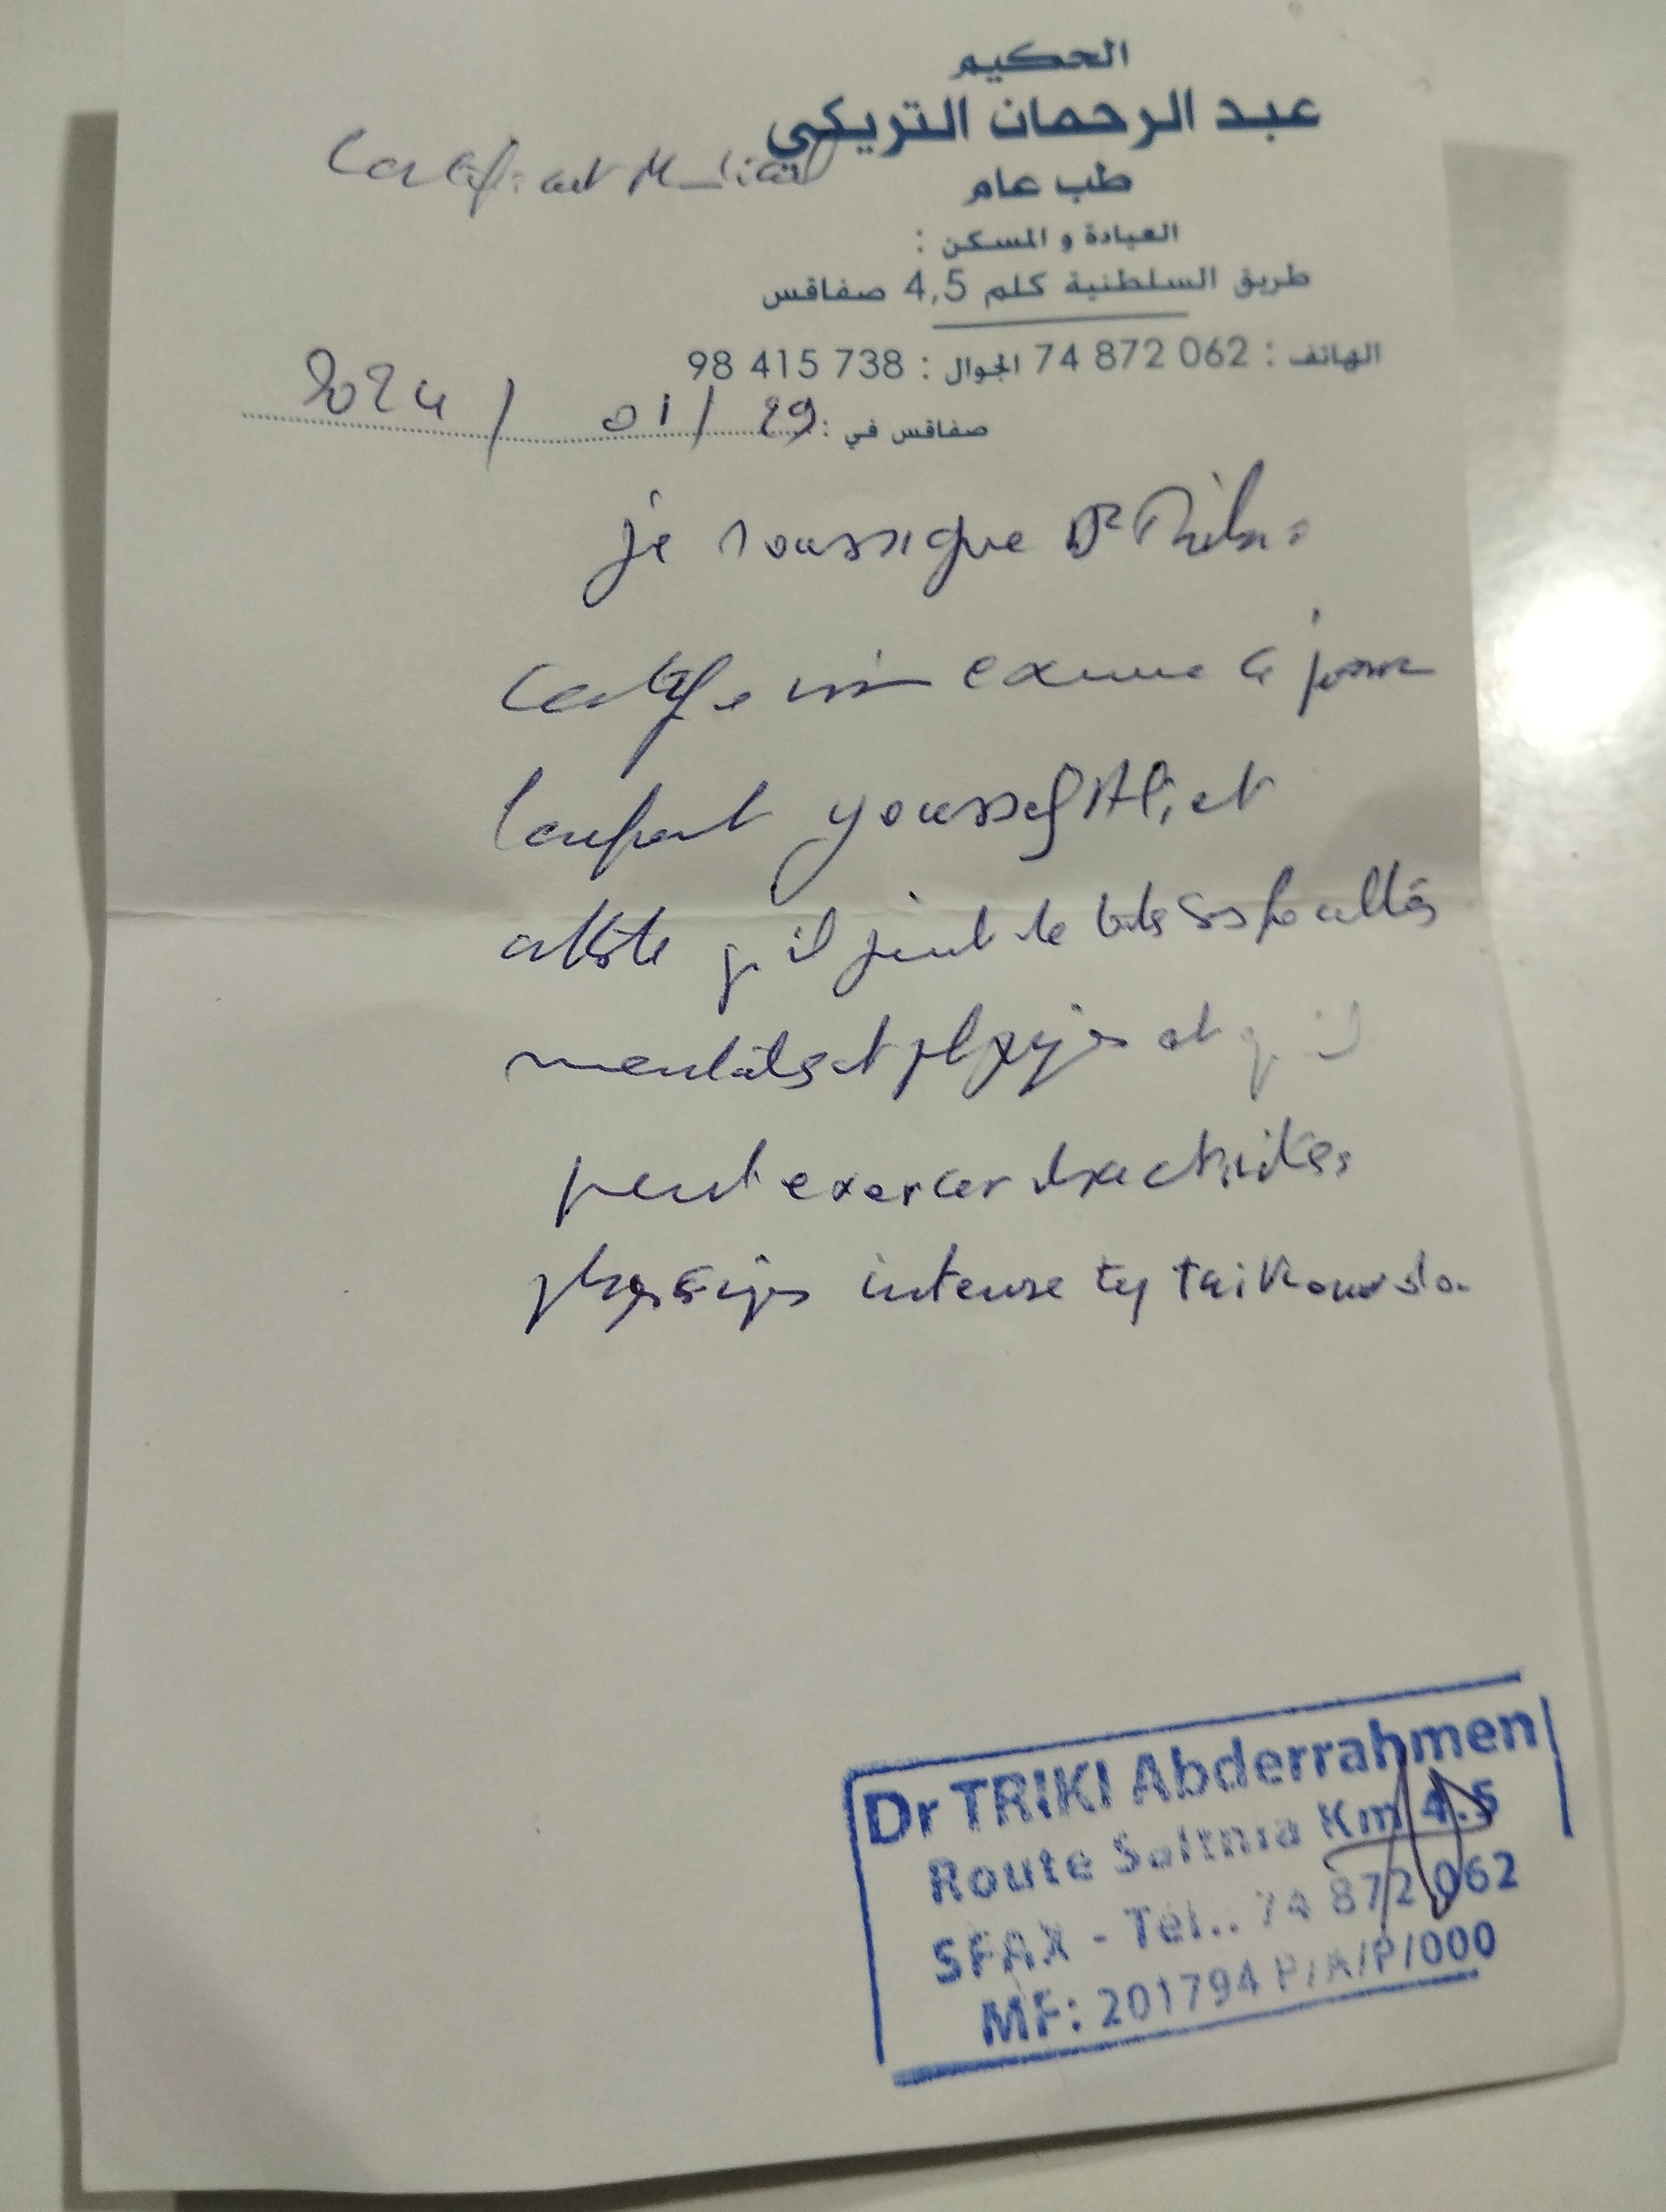 الحكيم
عبد الرحمان التريكي
Certificat Médical
طب عام
العيادة و المسكن :
طريق السلطنية كلم 4,5 صفاقس
الهاتف : 74 872 062 الجوال : 98 415 738
صفاقس في : 29 / 01 / 2024
je soussigne Dr Triki
Certifie avoir examine ce jour
l'enfant youssef Ali et
atteste qu'il jouit de toute ses facultés
mentales et physiques et qu'il
peut exercer des activités
physiques intense type taikowndo
Dr TRIKI Abderrahmen
Route Saltnia Km 4.5
SFAX - Tél.. 74 872 062
MF: 201794 P/A/P/000